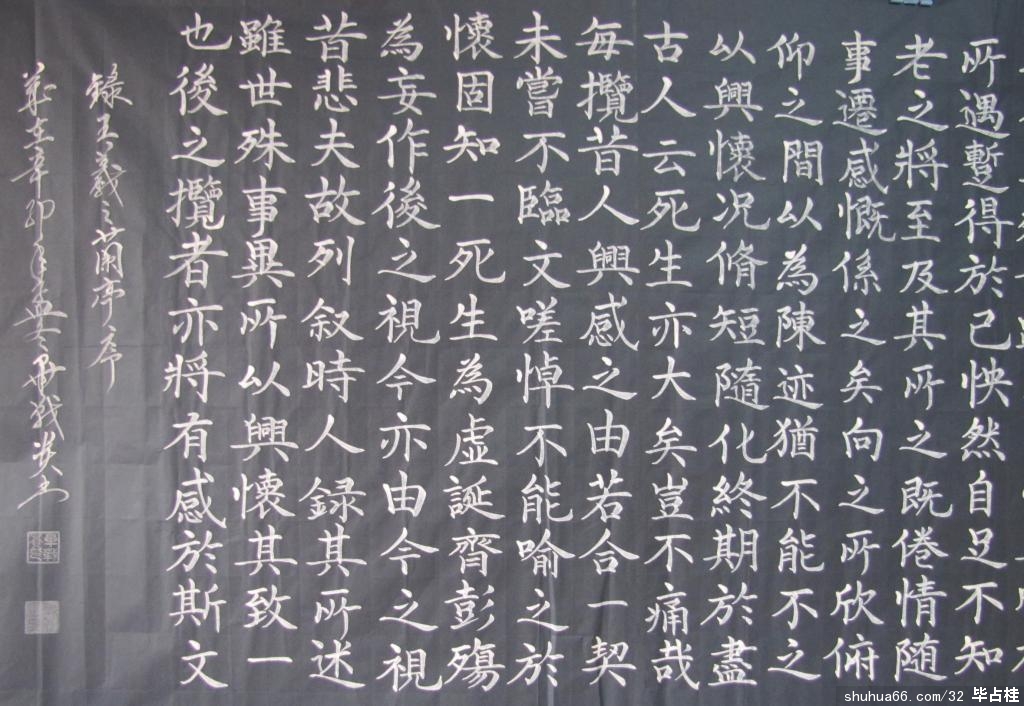 所遇蹔得於己怏然自足不知
老之將至及其所之既倦情随
事遷感慨係之矣向之所欣俯
仰之間以為陳迹猶不能不之
以興懷况脩短隨化終期於盡
古人云死生亦大矣豈不痛哉
每攬昔人興感之由若合一契
未嘗不臨文嗟悼不能喻之於
懷固知一死生為虛誕齊彭殤
為妄作後之視今亦由今之視
昔悲夫故列叙時人録其所述
雖世殊事異所以興懷其致一
也後之攬者亦將有感於斯文
録王羲之蘭亭序
歲在辛卯年
shuhua66.com/32 毕占桂